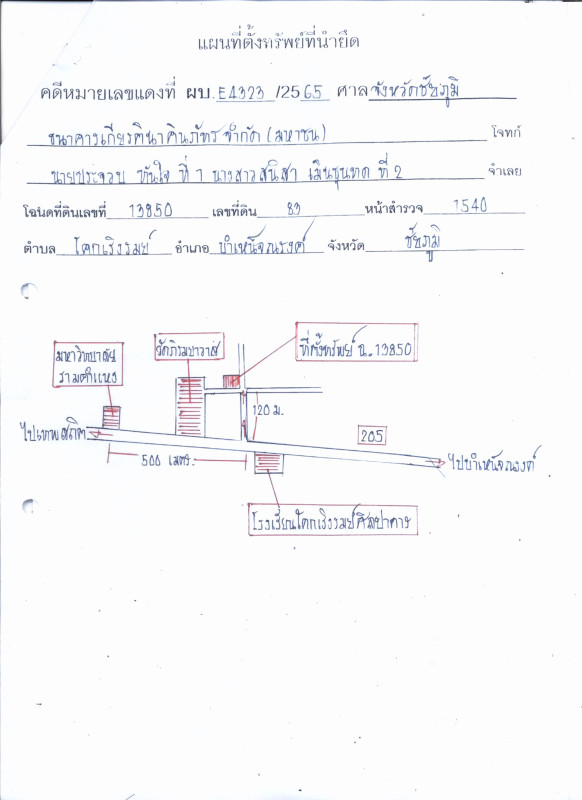 แผนที่ตั้งทรัพย์ที่นำยึด
คดีหมายเลขแดงที่ ผบ. E4323 /25 65 ศาล จังหวัดชัยภูมิ
ธนาคารเกียรตินาคินภัทร จำกัด (มหาชน) โจทก์
นายประจวบ ทันใจ ที่ 1 นางสาวสนิสา เมินขุนทด ที่ 2 จำเลย
โฉนดที่ดินเลขที่ 13850 เลขที่ดิน 83 หน้าสำรวจ 1540
ตำบล โคกเริงรมย์ อำเภอ บำเหน็จณรงค์ จังหวัด ชัยภูมิ
มหาวิทยาลัย
รามคำแหง
วัดภิรมยาวาส
ที่ตั้งทรัพย์ ฉ.13850
120 ม.
ไปเทพสถิต
205
500 เมตร.
ไปบำเหน็จณรงค์
โรงเรียนโคกเริงรมย์ศิลปาคาร